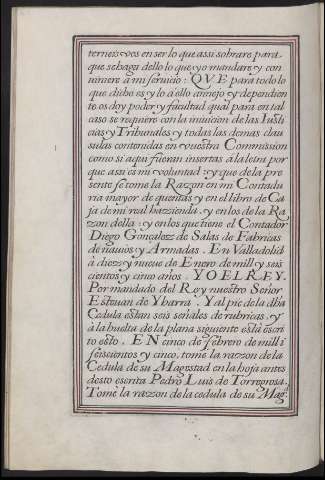 terneis vos en ser lo que assi sobrare para
que se haga dello lo que yo mandare y con
uiniere a mi seruicio: QVE para todo lo
que dicho es y lo a ello annejo y dependien
te os doy poder y facultad qual para en tal
caso se requiere con la iniuicion de las Iusti
cias y Tribunales y todas las demas clau
sulas contenidas en vuestra Commission
como si aqui fueran insertas a la letra por
que assi es mi voluntad : y que de la pre
sente se tome la Razon en mi Contadu
ria mayor de quentas y en el libro de Ca
ja de mi real hazzienda . y en los de la Ra
zon della : y en los que tiene el Contador
Diego Gonçalez de Salas de Fabricas
de nauios y Armadas . En Valladolid
a diez y nueue de Enero de mill y seis
cientos y cinco años . YO EL REY.
Por mandado del Rey nuestro Señor
Esteuan de Ybarra . Y al pie de la dha
Cedula estan seis señales de rubricas . y
a la buelta de la plana siguiente està escri
to esto . EN cinco de febrero de mill i
seiscientos y cinco, tome la razon de la
Cedula de su Magestad en la hoja antes
desto escrita Pedro Luis de Torregrosa.
Tomè la razon de la cedula de su Magd.